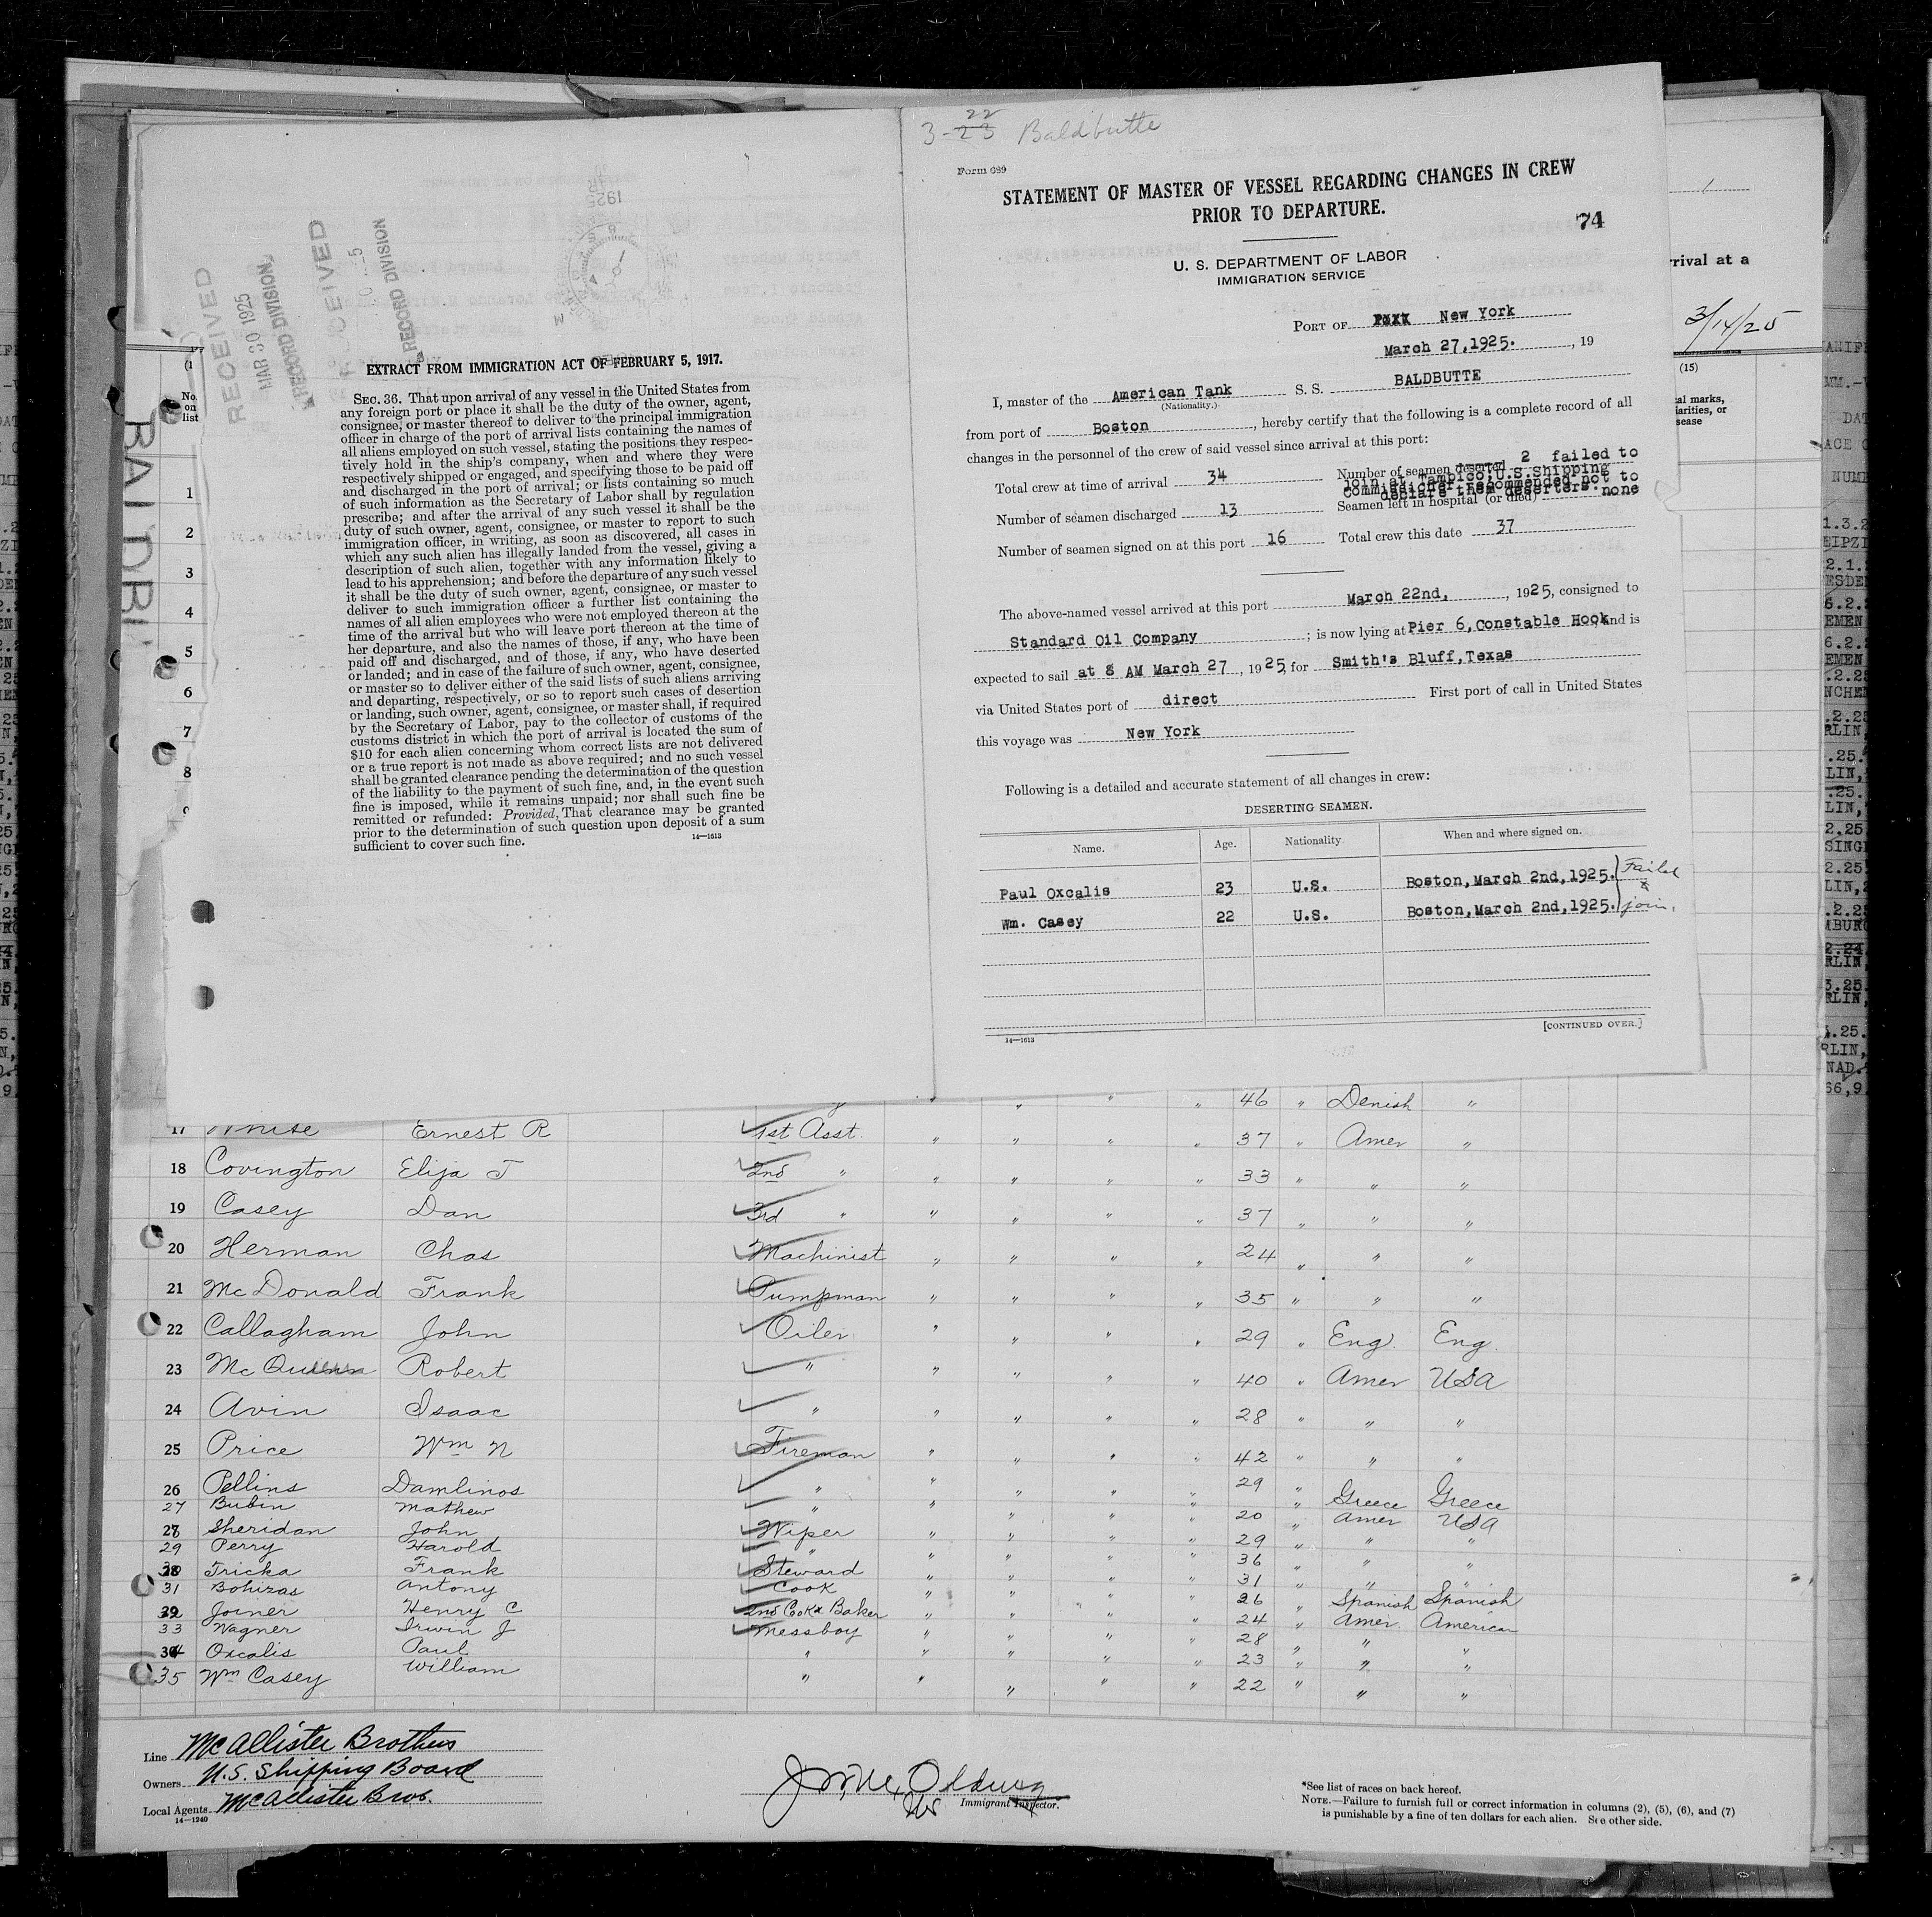 3-23 22 Baldbutte
Form 689
STATEMENT OF MASTER OF VESSEL REGARDING CHANGES IN CREW
PRIOR TO DEPARTURE.
74
U. S. DEPARTMENT OF LABOR
IMMIGRATION SERVICE
PORT OF New York
March 27,1925. , 19
I, master of the American Tank S. S. BALDBUTTE
(Nationality.)
from port of Boston , hereby certify that the following is a complete record of all
changes in the personnel of the crew of said vessel since arrival at this port:
Total crew at time of arrival 34 Number of seamen deserted 2 failed to
join at Tampico, U.S.Shipping
Commissioner recommended not to
declare them deserters.
Number of seamen discharged 13 Seamen left in hospital (or died) none
Number of seamen signed on at this port 16 Total crew this date 37
The above-named vessel arrived at this port March 22nd, , 1925, consigned to
Standard Oil Company ; is now lying at Pier 6,Constable Hook and is
expected to sail at 8 AM March 27 , 1925, for Smith's Bluff,Texas
via United States port of direct First port of call in United States
this voyage was New York
Following is a detailed and accurate statement of all changes in crew:
DESERTING SEAMEN.
Name. Age. Nationality When and where signed on.
Paul Oxcalis 23 U.S. Boston,March 2nd,1925. Failed
to
Wm. Casey 22 U.S. Boston,March 2nd,1925. join.
[CONTINUED OVER.]
14—1613
RECEIVED
MAR 30 1925
RECORD DIVISION
RECEIVED
RECORD DIVISION
1925
EXTRACT FROM IMMIGRATION ACT OF FEBRUARY 5, 1917.
SEC. 36. That upon arrival of any vessel in the United States from
any foreign port or place it shall be the duty of the owner, agent,
consignee, or master thereof to deliver to the principal immigration
officer in charge of the port of arrival lists containing the names of
all aliens employed on such vessel, stating the positions they respec-
tively hold in the ship's company, when and where they were
respectively shipped or engaged, and specifying those to be paid off
and discharged in the port of arrival; or lists containing so much
of such information as the Secretary of Labor shall by regulation
prescribe; and after the arrival of any such vessel it shall be the
duty of such owner, agent, consignee, or master to report to such
immigration officer, in writing, as soon as discovered, all cases in
which any such alien has illegally landed from the vessel, giving a
description of such alien, together with any information likely to
lead to his apprehension; and before the departure of any such vessel
it shall be the duty of such owner, agent, consignee, or master to
deliver to such immigration officer a further list containing the
names of all alien employees who were not employed thereon at the
time of the arrival but who will leave port thereon at the time of
her departure, and also the names of those, if any, who have been
paid off and discharged, and of those, if any, who have deserted
or landed; and in case of the failure of such owner, agent, consignee,
or master so to deliver either of the said lists of such aliens arriving
and departing, respectively, or so to report such cases of desertion
or landing, such owner, agent, consignee, or master shall, if required
by the Secretary of Labor, pay to the collector of customs of the
customs district in which the port of arrival is located the sum of
$10 for each alien concerning whom correct lists are not delivered
or a true report is not made as above required; and no such vessel
shall be granted clearance pending the determination of the question
of the liability to the payment of such fine, and, in the event such
fine is imposed, while it remains unpaid; nor shall such fine be
remitted or refunded: Provided, That clearance may be granted
prior to the determination of such question upon deposit of a sum
sufficient to cover such fine.
14—1613
No
on
list
1
2
3
4
5
6
7
8
rival at a
3/14/25
(15)
46 " Denish "
17 White Ernest R 1st Asst. " " " " 37 " Amer "
18 Covington Elija T 2nd " " " " " 33 " " "
19 Casey Dan 3rd " " " " " 37 " " "
20 Herman Chas Machinist " " " " 24 " " "
21 McDonald Frank Pumpman " " " " 35 " " "
22 Callagham John Oiler " " " " 29 " Eng. Eng.
23 Robert " " " " " 40 " Amer USA
24 Avin Isaac " " " " " 28 " " "
25 Price Wm N Fireman " " " " 42 " " "
26 Pellins Damlinos " " " " " 29 " Greece Greece
27 Bubin Mathew " " " " " 20 " Amer USA
28 Sheridan John Wiper " " " " 29 " " "
29 Perry Harold " " " " " 36 " " "
30 Tricka Frank Steward " " " " 31 " " "
31 Bohizas Antony Cook " " " " 26 " Spanish Spanish
32 Joiner Henry C 2nd Cook & Baker " " " " 24 " Amer. American
33 Wagner Irwin J Messboy " " " " 28 " " "
34 Oxcalis Paul " " " " " 23 " " "
35 Wm Casey William " " " " " 22 " " "
Line McAllister Brothers
Owners U.S. Shipping Board
Local Agents McAllister Bros.
14—1240
Immigrant Inspector.
*See list of races on back hereof.
NOTE.—Failure to furnish full or correct information in columns (2), (5), (6), and (7)
is punishable by a fine of ten dollars for each alien. See other side.